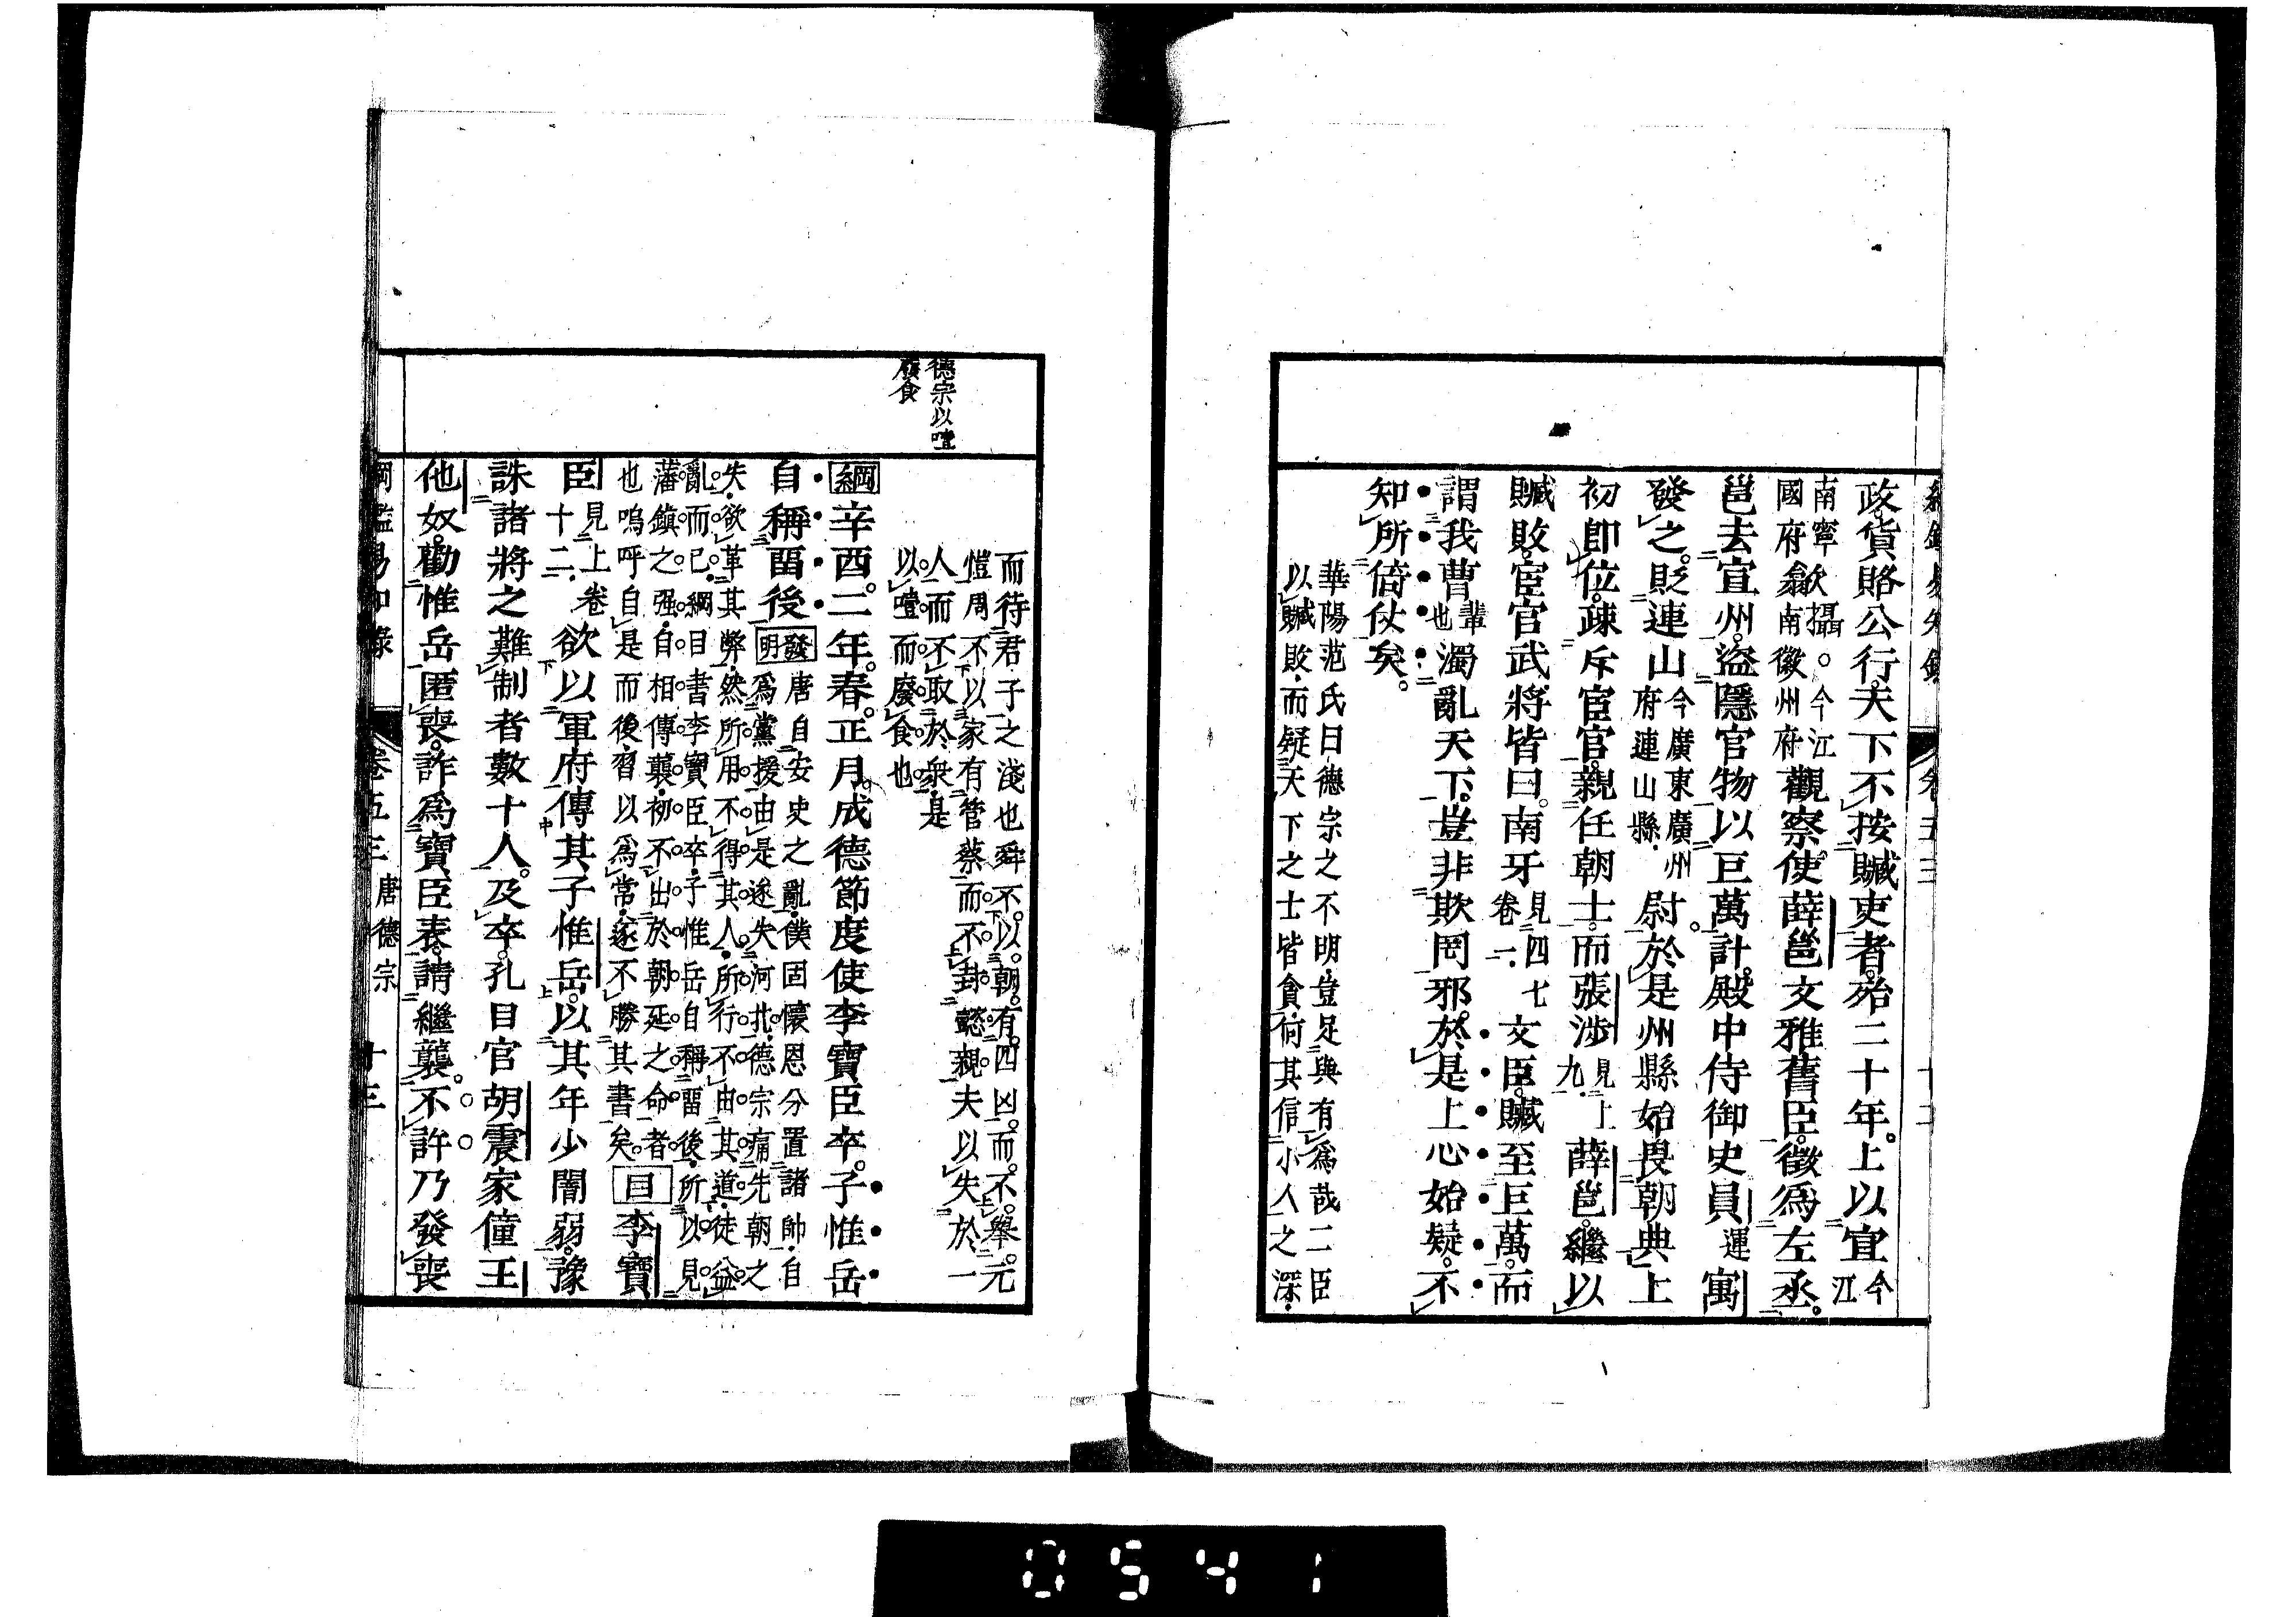 政貨賂公行天下不按贓吏者殆二十年上以宣今江
南寧欽攝○今江
國府歙南徽州府
觀察使薛邕文雅舊臣徵爲左丞
邕去宣州盜隱官物以巨萬計殿中侍御史員運寓
發之貶連山今廣東廣州府連山縣尉於是州縣始畏朝典上
初卽位疎斥宦官親任朝士而張涉見上九薛邕繼以
贓敗宦官武將皆曰南牙見四七卷一文臣贓至巨萬而
謂我曹輩也濁亂天下豈非欺罔邪於是上心始疑不
知所倚仗矣
華陽范氏曰德宗之不明豈足與有爲哉二臣
以贓敗而疑天下之士皆貪何其信小人之深
德宗以噎
廢食
而待君子之淺也舜不以朝有四凶而不舉元
愷周不以家有管蔡而不封懿親夫以失於一
人而不取於衆是
以噎而廢食也
綱辛酉二年春正月成德節度使李寶臣卒子惟岳
自稱留後發明唐自安史之亂僕固懷恩分置諸帥自
爲黨援由是遂失河北德宗痛先朝之
失欲革其弊然所用不得其人所行不由其道徒益
亂而已綱目書李寶臣卒子惟岳自稱留後所以見
藩鎮之强自相傳襲初不出於朝廷之命者
也嗚呼自是而後習以爲常遂不勝其書矣目李寶
臣見上卷十二欲以軍府傳其子惟岳以其年少闇弱豫
誅諸將之難制者數十人及卒孔目官胡震家僮王
他奴勸惟岳匿喪詐爲寶臣表請繼襲不許乃發喪
綱鑑易知錄 卷五三 唐德宗 十三